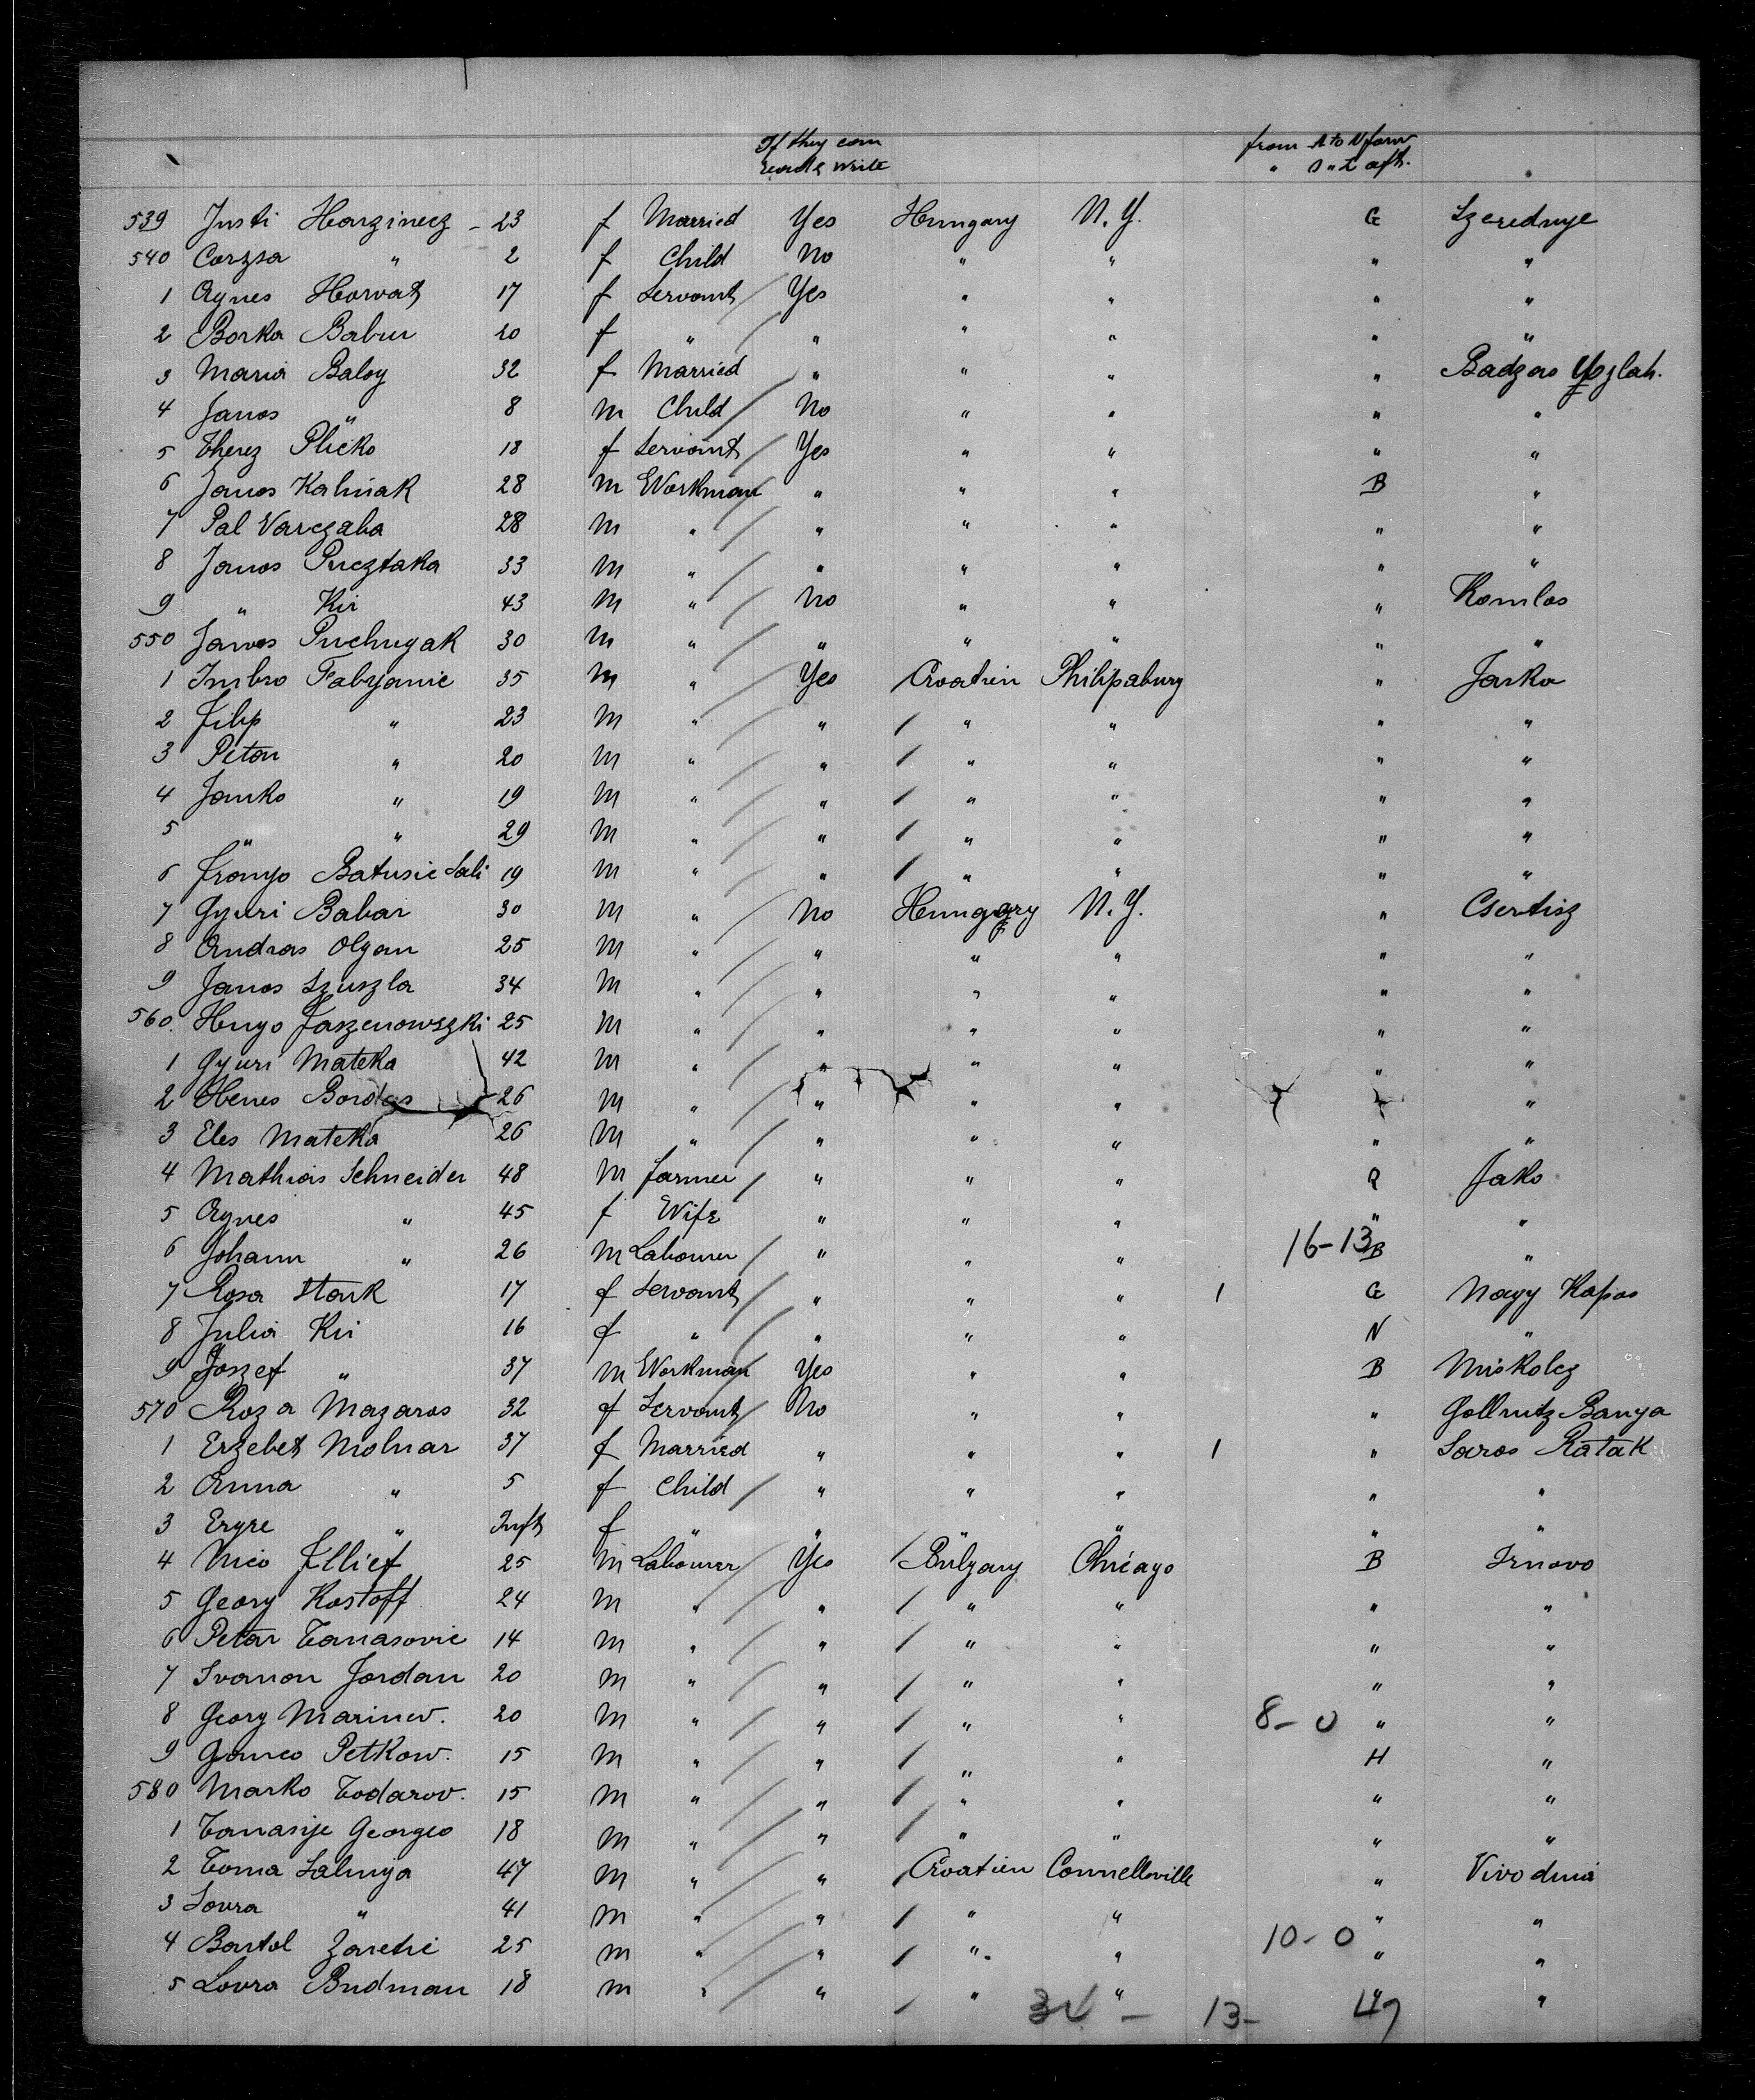 If they can from A to N forw
read & write " O " Z aft.
539 Justi Harzinecz - 23 f Married Yes Hungary N.Y. G Szerednye
540 Corzsa " 2 f Child No " " " "
1 Agnes Horvat 17 f Servant Yes " " " "
2 Borka Babur 20 f " " " " " "
3 Maria Baloy 32 f Married " " " " Badzas
4 Janos " 8 m Child No " " " "
5 Therez Plicko 18 f Servant Yes " " " "
6 Janos Kalniak 28 m Workman " " " B "
7 Pal Varczaba 28 m " " " " " "
8 Janos Pucztaka 33 m " " " " " "
9 " Kir 43 m " No " " " Komlos
550 Janos Puchnyak 30 m " " " " " "
1 Imbro Fabijanic 35 m " Yes Croatien Philipsburg " Jarko
2 Filip " 23 m " " " " " "
3 Petar " 20 m " " " " " "
4 Janko " 19 m " " " " " "
5 " " 29 m " " " " " "
6 Franjo Batusic Sali 19 m " " " " " "
7 Gyuri Babar 30 m " No Hungary N.Y. " Csertisz
8 Andras Olgan 25 m " " " " " "
9 Janos Szuszla 34 m " " " " " "
560. Hugo Jaszenowszki 25 m " " " " " "
1 Gyuri Mateka 42 m " " " " " "
2 Henes Bordas 26 m " " " " "
3 Eles Mateka 26 m " " " " " "
4 Mathias Schneider 48 m farmer " " " R Jako
5 Agnes " 45 f Wife " " " " "
6 Johann " 26 m Labourer " " " 16-13 B "
7 Rosa Stark 17 f Servant " " " 1 G Nagy Kapos
8 Julia Kir 16 f " " " " N "
9 Joszef " 37 m Workman Yes " " B Miskolcz
570 Roza Mazaros 32 f Servant No " " " Gollnitz Banya
1 Erzebet Molnar 37 f Married " " " 1 " Saros Patak
2 Anna " 5 f Child " " " " "
3 " Inft f " " " " " "
4 Nico Illief 25 m Labourer Yes Bulgary Chicago B Trnovo
5 Georg Kostoff 24 m " " " " " "
6 Petar Tanasovic 14 m " " " " " "
7 Ivanon Jordan 20 m " " " " " "
8 Georg Marinew. 20 m " " " " 8-0 " "
9 Ganco Petkow. 15 m " " " " H "
580 Marko Todarov. 15 m " " " " " "
1 Tanasije Georgeo 18 m " " " " " "
2 Toma Salinija 47 m " " Croatien Connellsville " Vivodina
3 Lovra " 41 m " " " " " "
4 Bartol Zaretic 25 m " " " " 10-0 " "
5 Lovra Budman 18 m " " " " " "
34 - 13- 47